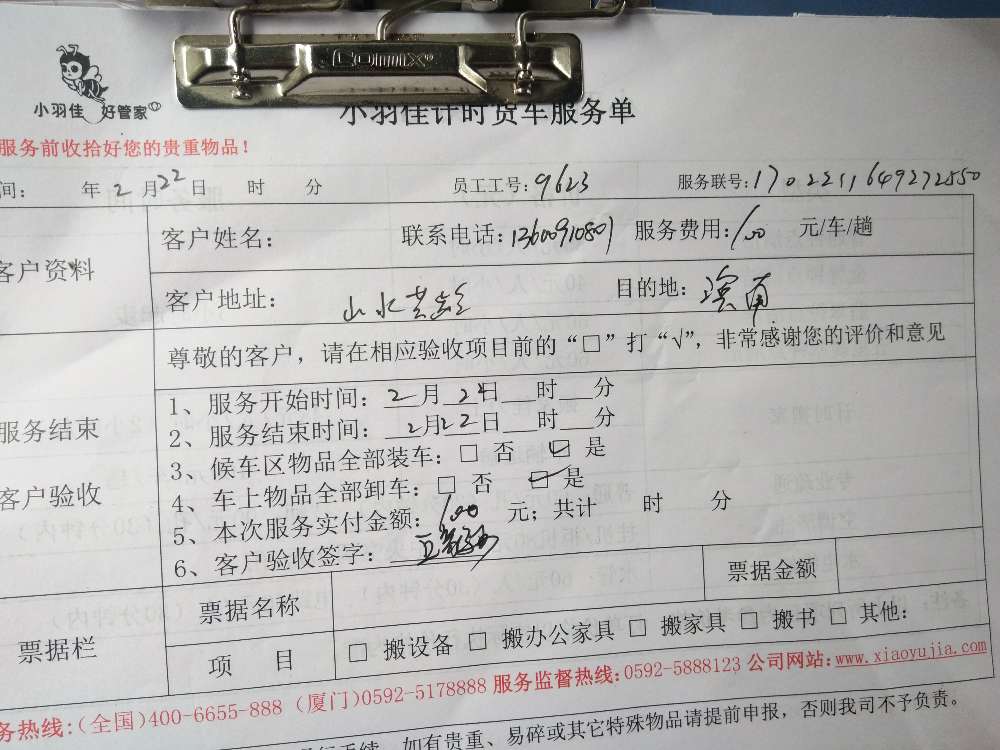 comix®
小羽佳 好管家
小羽佳计时货车服务单
服务前收拾好您的贵重物品！
间： 年 2 月 22 日 时 分 员工工号：9623 服务联号：17022211649272550
客户资料
客户姓名： 联系电话：13600910801 服务费用：100 元/车/趟
客户地址：山水芸 目的地：
尊敬的客户，请在相应验收项目前的“□”打“√”，非常感谢您的评价和意见
服务结束
客户验收
1、服务开始时间：2 月 22 日 时 分
2、服务结束时间：2 月 22 日 时 分
3、候车区物品全部装车：□ 否 ☑ 是
4、车上物品全部卸车：□ 否 ☑ 是
5、本次服务实付金额：100 元；共计 时 分
6、客户验收签字：
票据栏
票据名称 票据金额
项 目 □ 搬设备 □ 搬办公家具 □ 搬家具 □ 搬书 □ 其他：
务热线：（全国）400-6655-888（厦门）0592-5178888 服务监督热线：0592-5888123 公司网站：www.xiaoyujia.com
如有贵重、易碎或其它特殊物品请提前申报，否则我司不予负责。